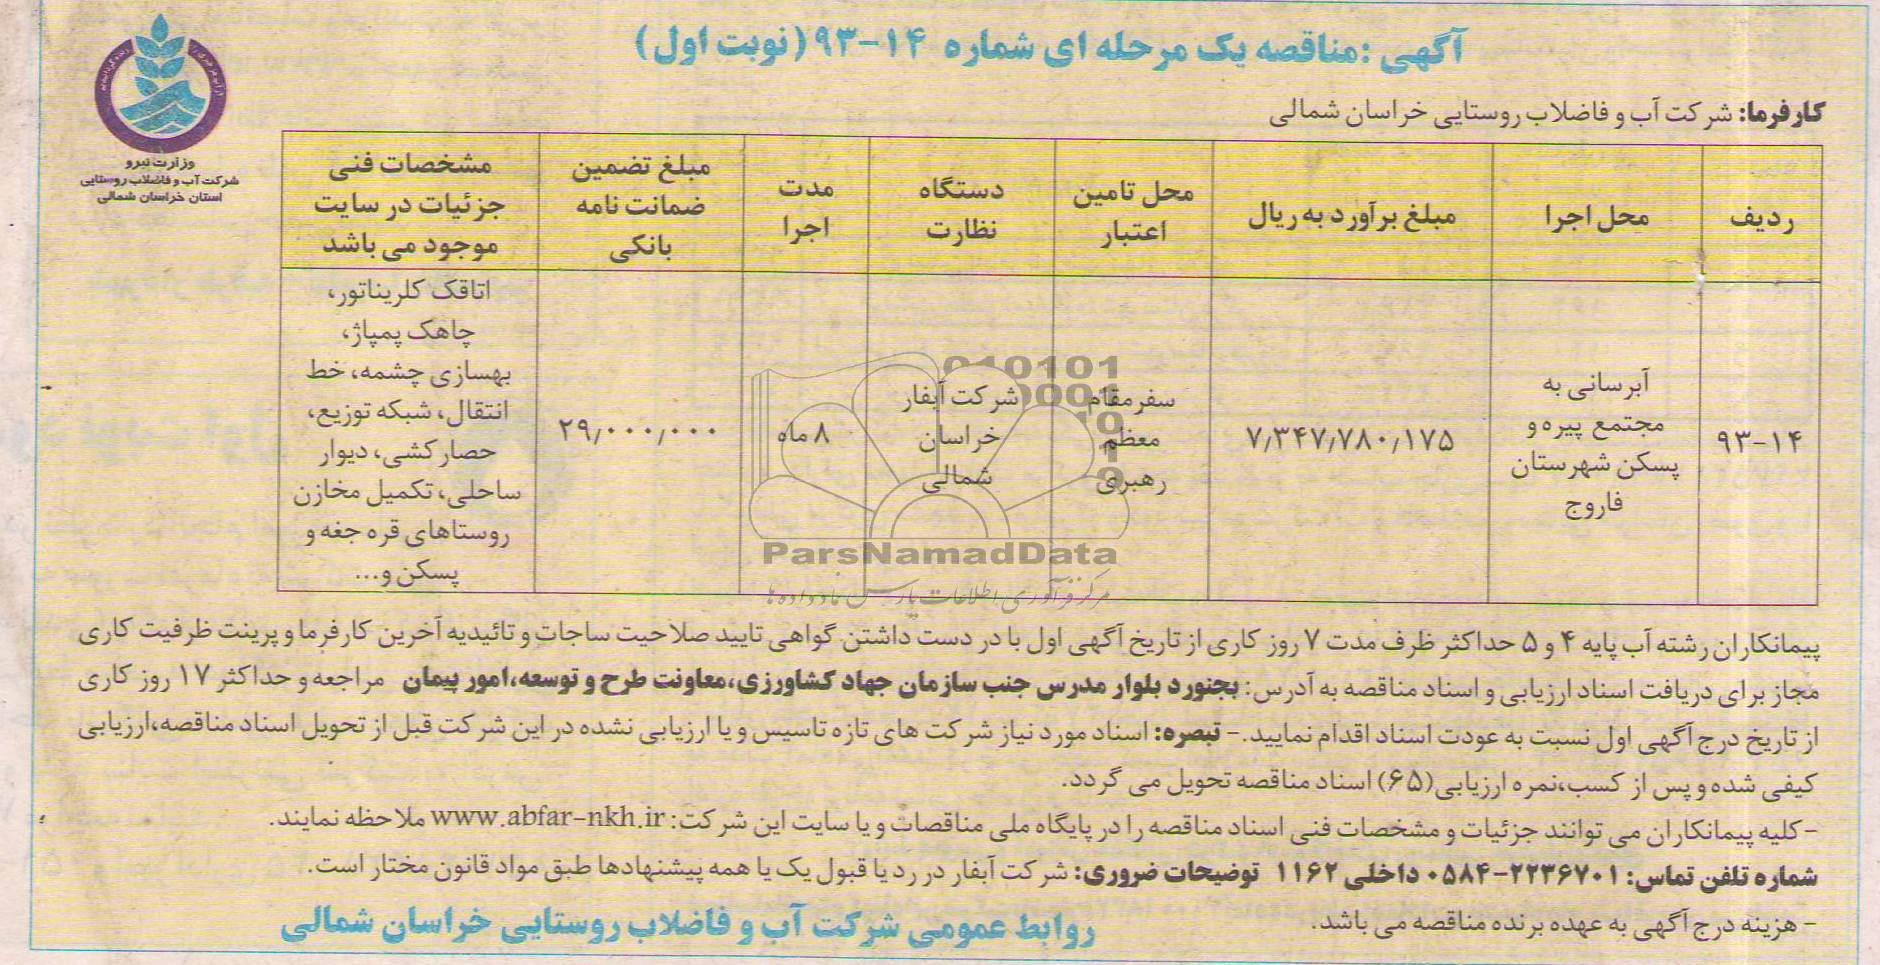 آگهی :مناقصه یک مرحله ای شماره ۱۴-۹۳ (نوبت اول)
وزارت نیرو
شرکت آب و فاضلاب روستایی
استان خراسان شمالی
کارفرما: شرکت آب و فاضلاب روستایی خراسان شمالی
ردیف
محل اجرا
مبلغ برآورد به ریال
محل تامین
اعتبار
دستگاه
نظارت
مدت
اجرا
مبلغ تضمین
ضمانت نامه
بانکی
مشخصات فنی
جزئیات در سایت
موجود می باشد
۹۳-۱۴
آبرسانی به
مجتمع پیره و
پسکن شهرستان
فاروج
۷٫۳۴۷٫۷۸۰٫۱۷۵
سفرمقام
معظم
رهبری
شرکت آبفار
خراسان
شمالی
۸ ماه
۲۹٫۰۰۰٫۰۰۰
اتاقک کلریناتور،
چاهک پمپاژ،
بهسازی چشمه، خط
انتقال، شبکه توزیع،
حصارکشی، دیوار
ساحلی، تکمیل مخازن
روستاهای قره جغه و
پسکن و...
ParsNamadData
مرکز فرآوری اطلاعات پارس نماد داده ها
پیمانکاران رشته آب پایه ۴ و ۵ حداکثر ظرف مدت ۷ روز کاری از تاریخ آگهی اول با در دست داشتن گواهی تایید صلاحیت ساجات و تائیدیه آخرین کارفرما و پرینت ظرفیت کاری
مجاز برای دریافت اسناد ارزیابی و اسناد مناقصه به آدرس: بجنورد بلوار مدرس جنب سازمان جهاد کشاورزی،معاونت طرح و توسعه،امور پیمان مراجعه و حداکثر ۱۷ روز کاری
از تاریخ درج آگهی اول نسبت به عودت اسناد اقدام نمایید.- تبصره: اسناد مورد نیاز شرکت های تازه تاسیس و یا ارزیابی نشده در این شرکت قبل از تحویل اسناد مناقصه،ارزیابی
کیفی شده و پس از کسب،نمره ارزیابی(۶۵) اسناد مناقصه تحویل می گردد.
-کلیه پیمانکاران می توانند جزئیات و مشخصات فنی اسناد مناقصه را در پایگاه ملی مناقصات و یا سایت این شرکت: www.abfar-nkh.ir ملاحظه نمایند.
شماره تلفن تماس: ۲۲۳۶۷۰۱-۰۵۸۴ داخلی ۱۱۶۲ توضیحات ضروری: شرکت آبفار در رد یا قبول یک یا همه پیشنهادها طبق مواد قانون مختار است.
- هزینه درج آگهی به عهده برنده مناقصه می باشد.
روابط عمومی شرکت آب و فاضلاب روستایی خراسان شمالی